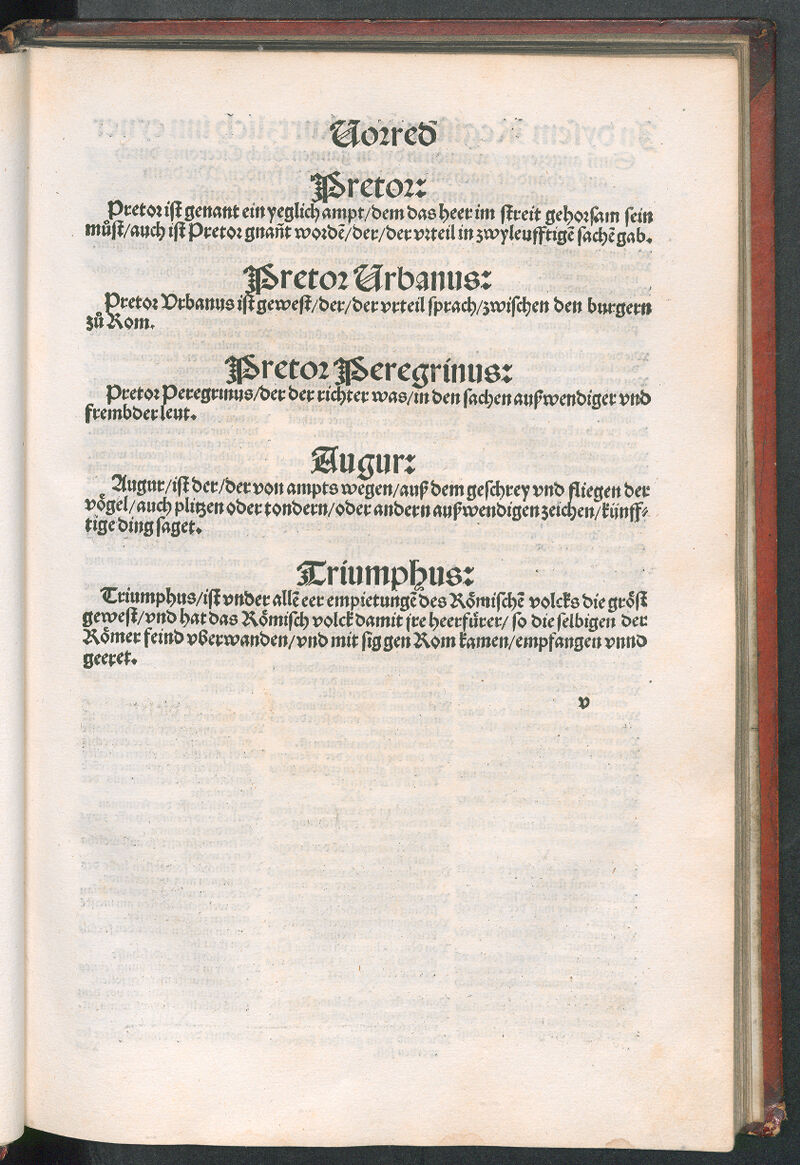 Vorred
Pretor:
Pretor ist genant ein yeglich ampt/dem das heer im streit gehorsam sein
můst/auch ist Pretor gnañt wordẽ/der/der vrteil in zwyleufftigẽ sachẽ gab.
Pretor Urbanus:
Pretor Vrbanus ist gewest/der/der vrteil sprach/zwischen den burgern
zů Rom.
Pretor Peregrinus:
Pretor Peregrinus/der der richter was/in den sachen außwendiger vnd
frembder leut.
Augur:
Augur/ist der/der von ampts wegen/auß dem geschrey vnd fliegen der
vögel/auch plitzen oder tondern/oder andern außwendigen zeichen/künff⸗
tige ding saget.
Triumphus:
Triumphus/ist vnder allẽ eer empietungẽ des Römischẽ volcks die gröst
gewest/vnd hat das Römisch volck damit jre heerfürer/ so die selbigen der
Römer feind vberwanden/vnd mit sig gen Rom kamen/empfangen vnnd
geeret.
v